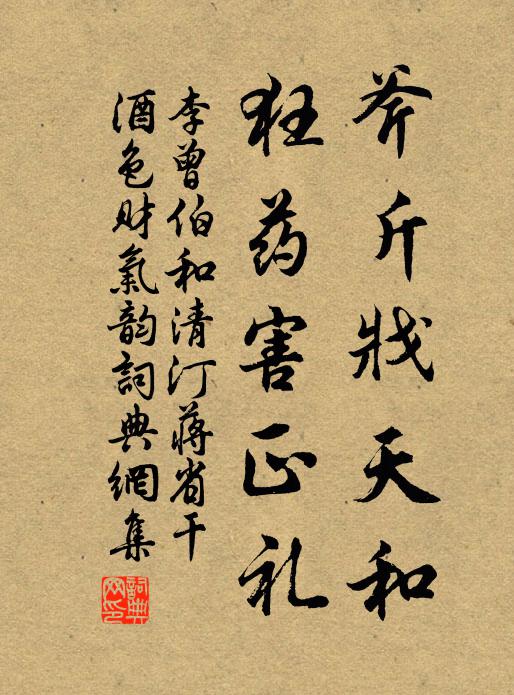 斧斤戕天和
狂药害正礼
李曾伯和清汀蒋省干
酒色财氣韵詞典網集
詞典网印